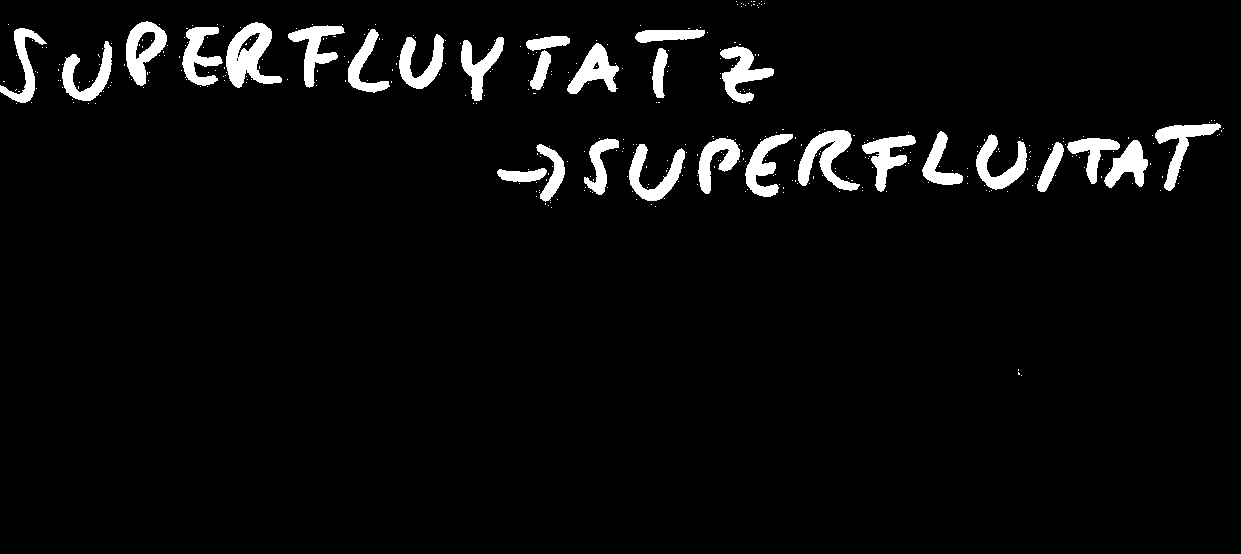 SUPERFLUYTATZ
→SUPERFLUITAT